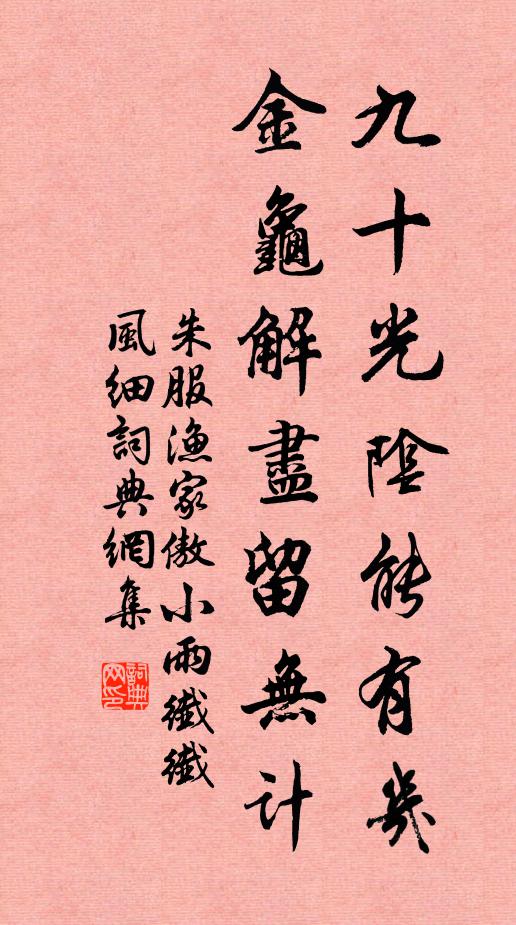 九十光陰能有幾
金龜解盡留無計
朱服漁家傲小雨纖纖
風細詞典網集
詞典網印